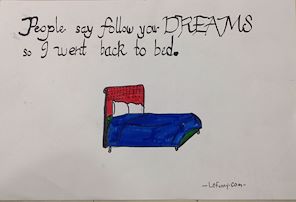 People say follow your DREAMS
so I went back to bed.